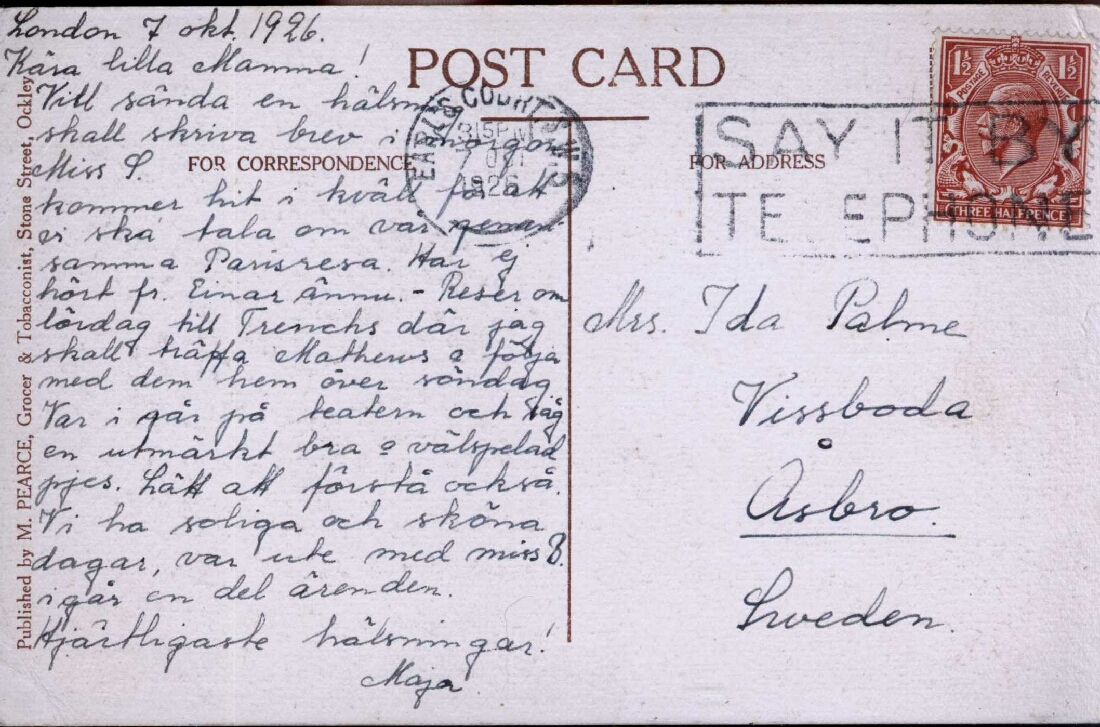 London 7 okt. 1926.
Kära lilla Mamma!
Vill sända en hälsn
skall skriva brev i morgon
Miss S.
kommer hit i kväll för att
vi ska tala om vår
samma Parisresa. Har ej
hört fr. Einar ännu. - Reser om
lördag till Trenchs där jag
skall träffa Mathews o följa
med dem hem över söndag
Var i går på teatern och såg
en utmärkt bra o välspelad
pjes. Lätt att förstå också.
Vi ha soliga och sköna
dagar, var ute med miss B.
i går en del ärenden.
Hjärtligaste hälsningar!
Maja
POST CARD
FOR CORRESPONDENCE
FOR ADDRESS
EARLS COURT S.W.5
3.15 PM
7 OCT
1926
SAY IT BY
TELEPHONE
1½ 1½
POSTAGE REVENUE
THREE HALFPENCE
Mrs. Ida Palme
Vissboda
Åsbro.
Sweden.
Published by M. PEARCE, Grocer & Tobacconist, Stone Street, Ockley